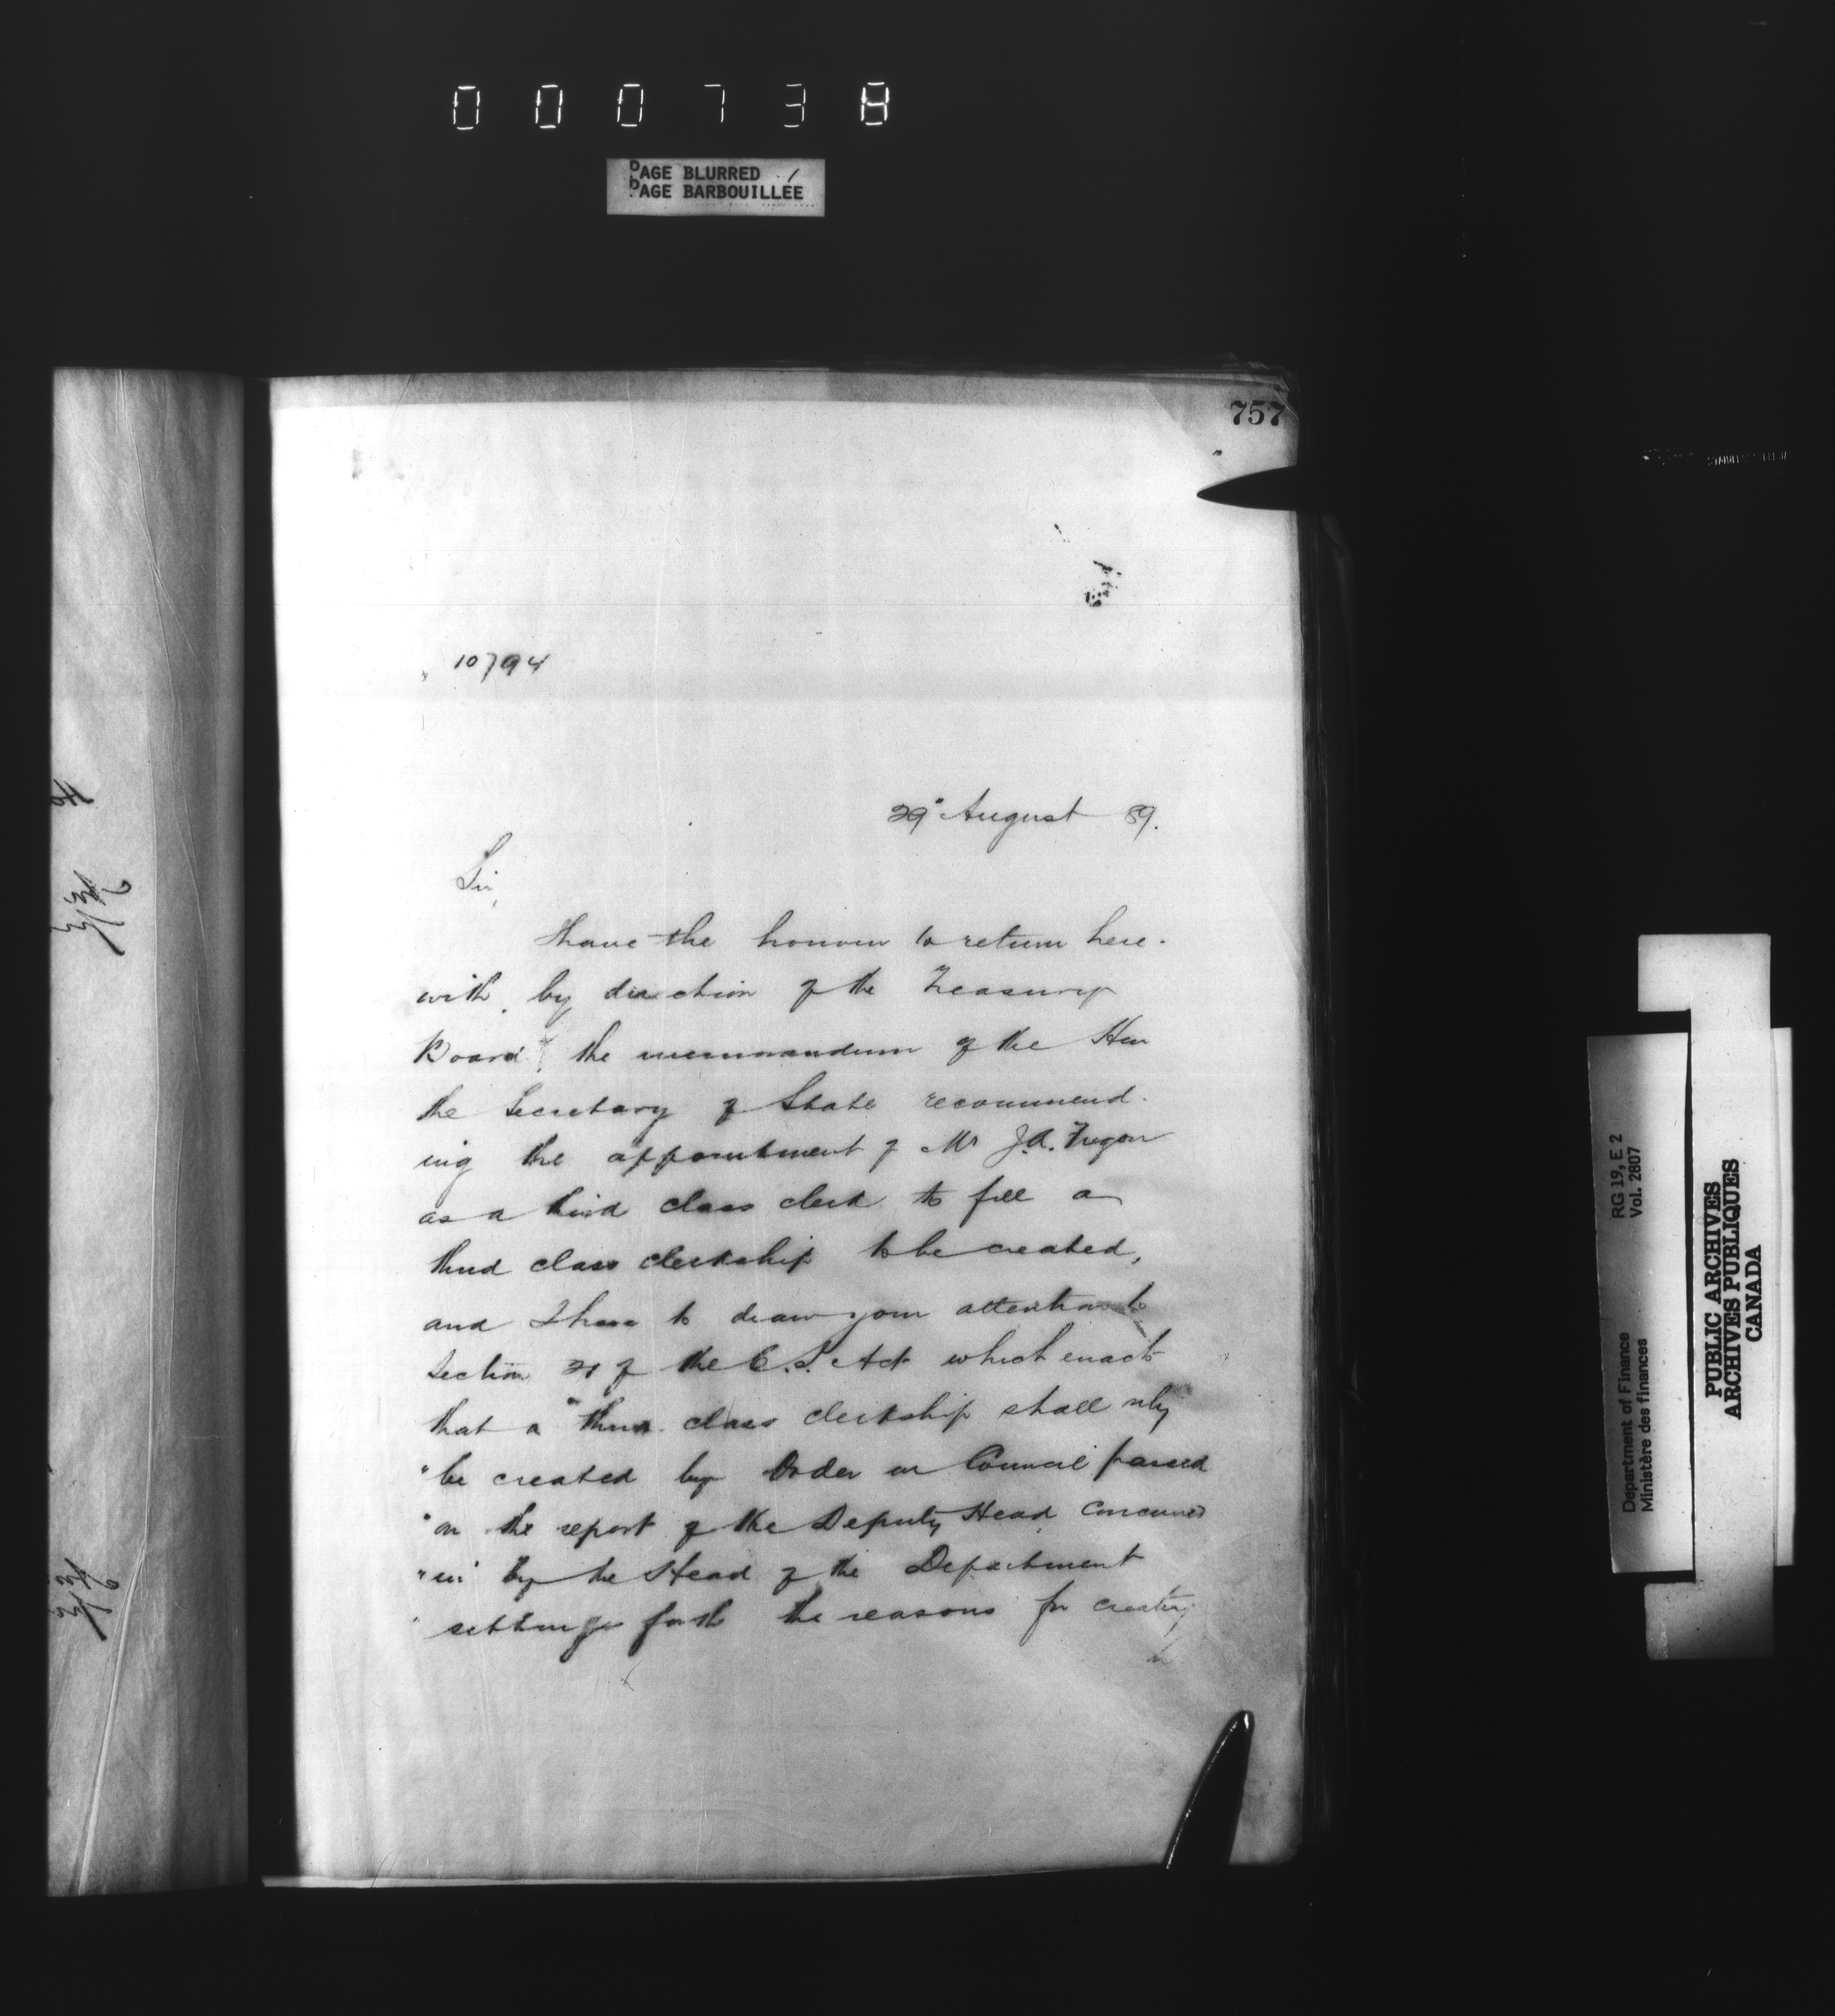 000738
PAGE BLURRED
PAGE BARBOUILLÉE
757
10794
29" August 89.
Sir,
I have the honour to return here-
with, by direction of the Treasury
Board, the memorandum of the Hon
the Secretary of State recommend-
ing the appointment of Mr J.A.
as a third class clerk to fill a
third class clerkship to be created,
and I have to draw your attention to
Section of the C.S. Act which enacts
that a "third class clerkship shall only
"be created by Order in Council passed
"on the report of the Deputy Head concurred
"in by the Head of the Department
" setting forth the reasons for creating
RG 19, E 2
Vol. 2807
Department of Finance
Ministère des finances
PUBLIC ARCHIVES
ARCHIVES PUBLIQUES
CANADA